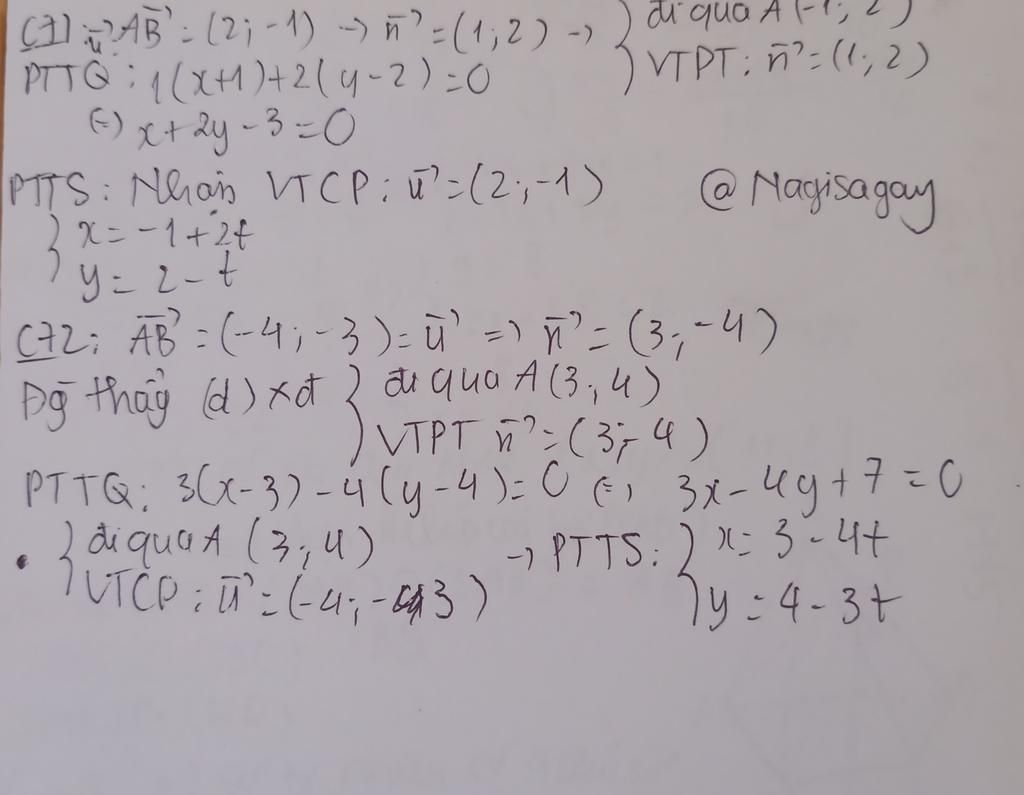 C71: u⃗ = AB⃗ = (2; -1) → n⃗ = (1; 2) → { đi qua A (-1; 2)
PTTQ: 1(x+1)+2(y-2)=0 { VTPT: n⃗ = (1; 2)
(=) x+2y-3=0
PTTS: Nhận VTCP: u⃗ = (2; -1) @Nagisagay
{ x = -1+2t
{ y = 2-t
C72: AB⃗ = (-4; -3) = u⃗ => n⃗ = (3; -4)
Đg thẳg (d) xđ { đi qua A (3; 4)
{ VTPT n⃗ = (3; -4)
PTTQ: 3(x-3)-4(y-4)=0 (=) 3x-4y+7=0
• { đi qua A (3; 4) → PTTS: { x = 3-4t
{ VTCP: u⃗ = (-4; -3) { y = 4-3t